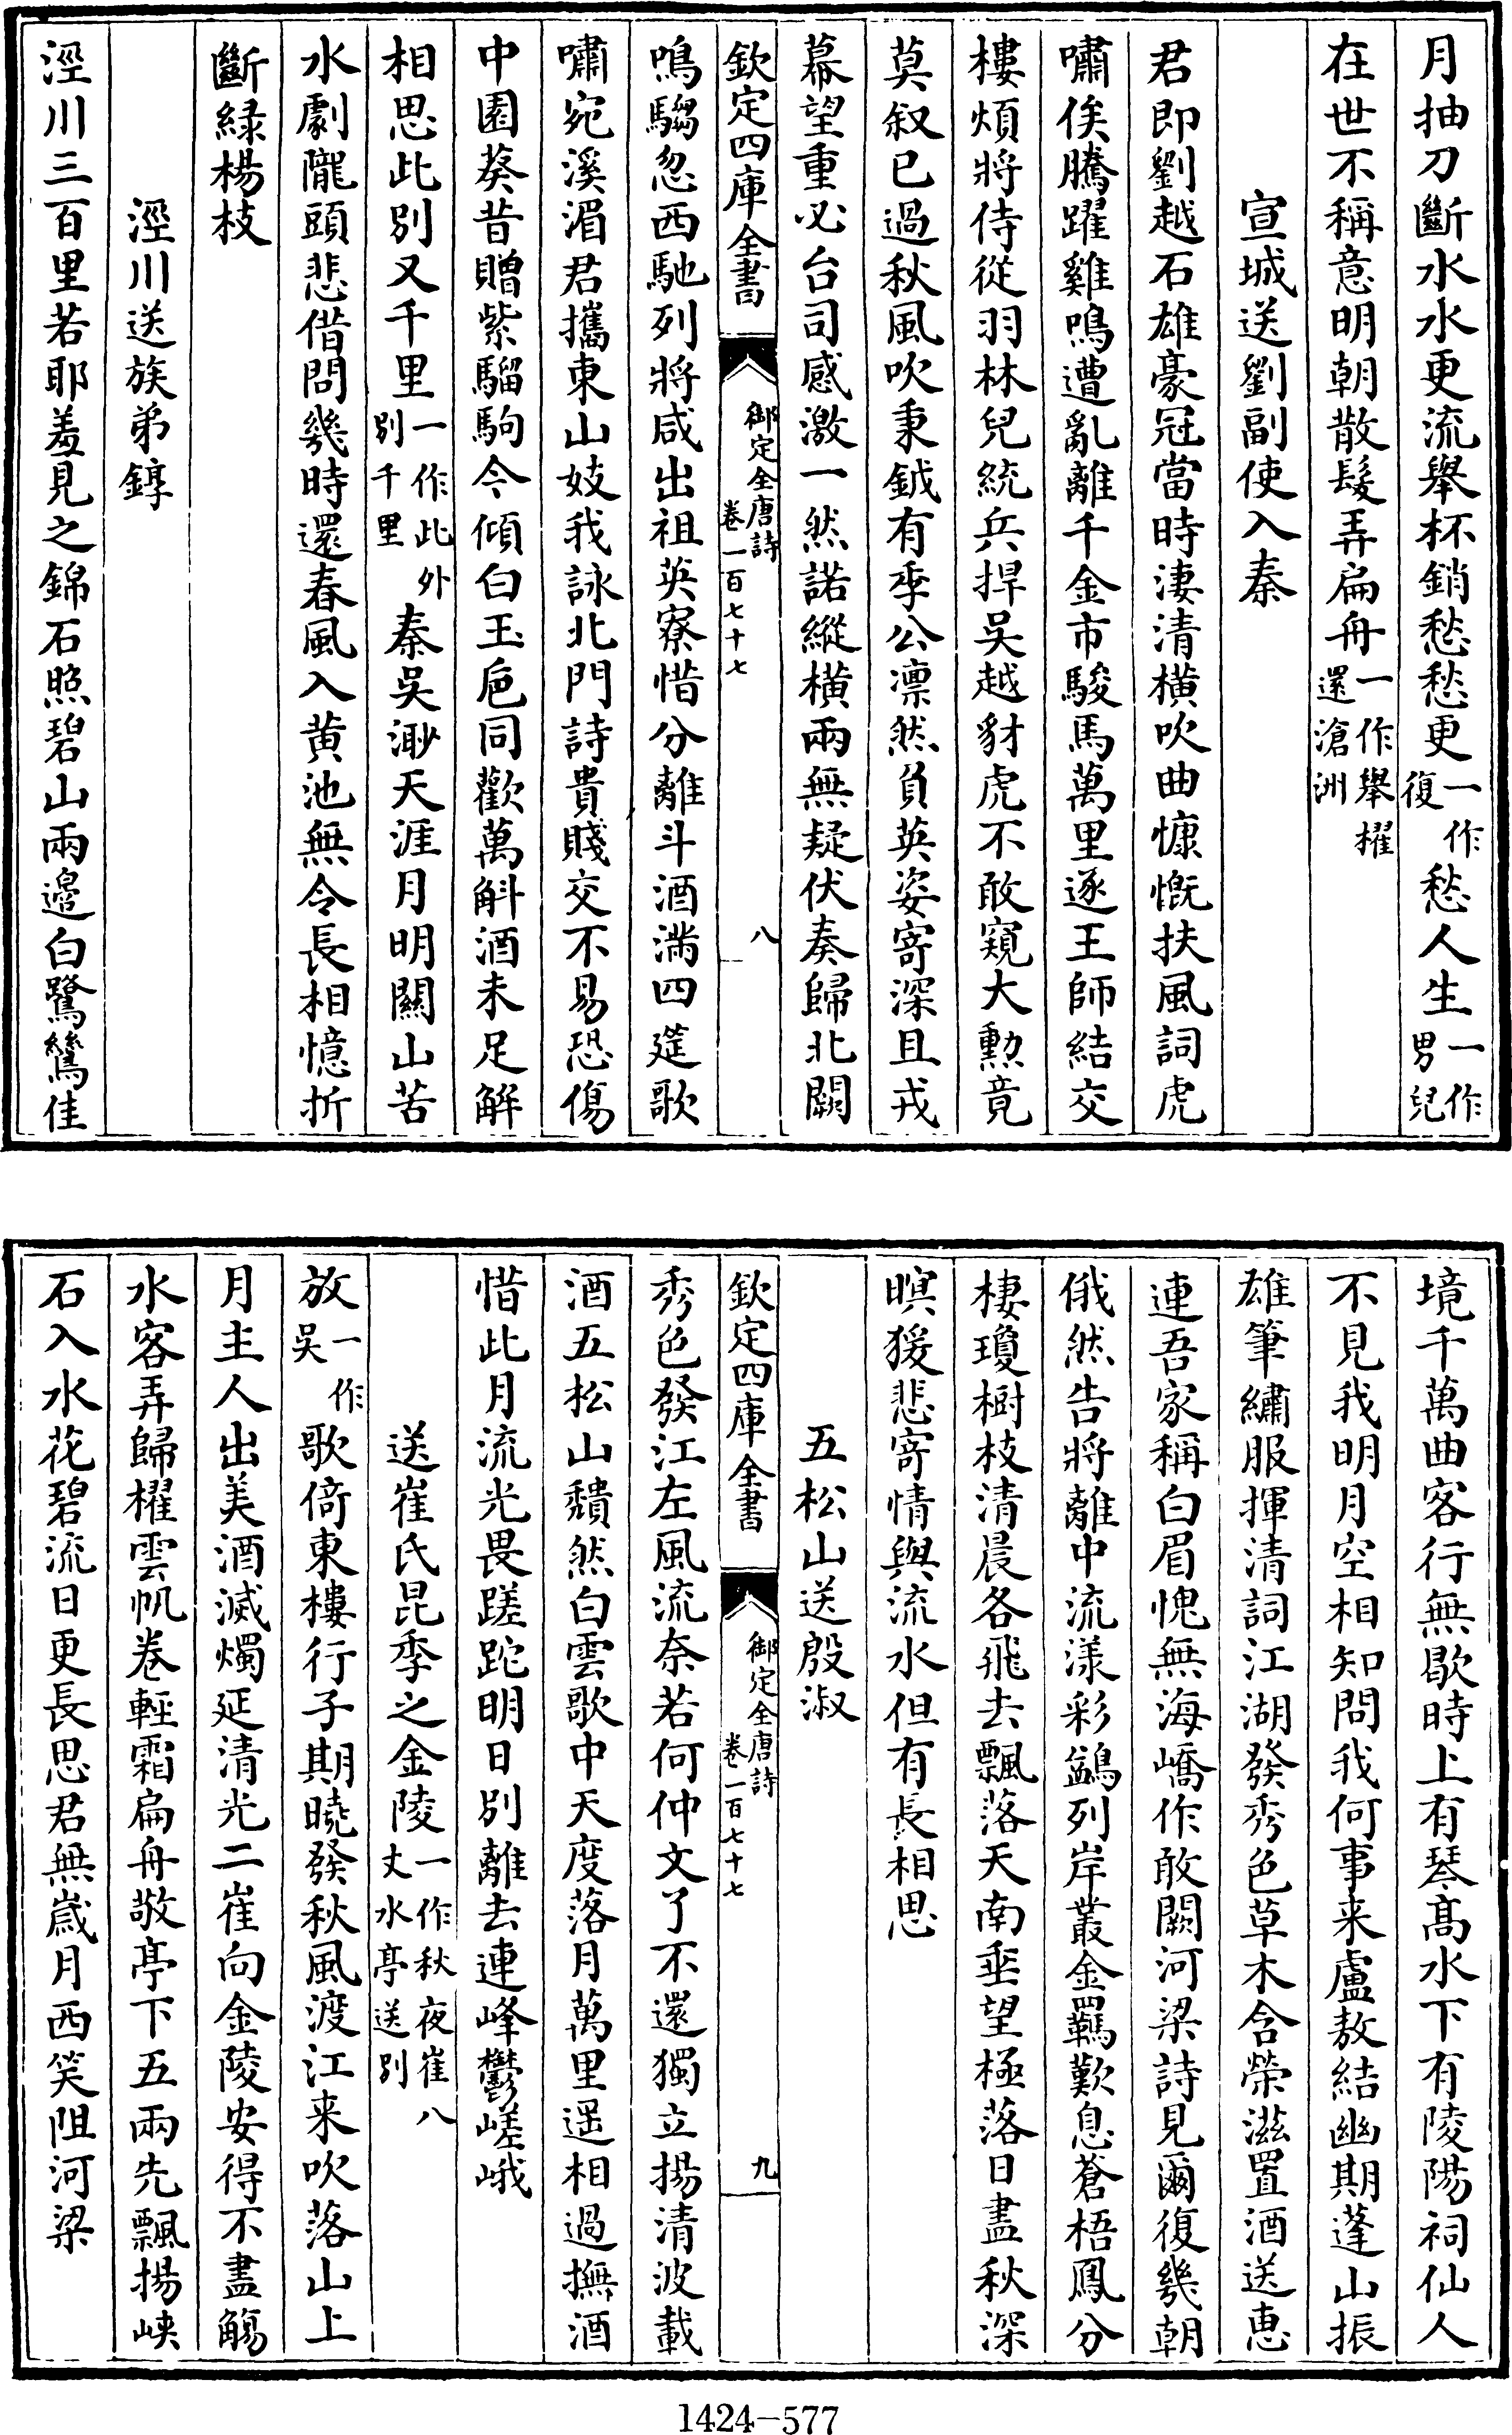 月抽刀斷水水更流舉杯銷愁愁更一作復愁人生一作男兒
在世不稱意明朝散髮弄扁舟一作舉櫂還滄洲
宣城送劉副使入秦
君即劉越石雄豪冠當時淒清横吹曲慷慨扶風詞虎
嘯俟騰躍雞鳴遭亂離千金市駿馬萬里逐王師結交
樓煩將侍從羽林兒統兵捍吳越豺虎不敢窺大勲竟
莫叙已過秋風吹秉鉞有季公凛然負英姿寄深且戎
幕望重必台司感激一然諾縱横兩無疑伏奏歸北闕
欽定四庫全書 御定全唐詩卷一百七十七 八
鳴騶忽西馳列將咸出祖英寮惜分離斗酒滿四筵歌
嘯宛溪湄君攜東山妓我詠北門詩貴賤交不易恐傷
中園葵昔贈紫騮駒今傾白玉巵同歡萬斛酒未足解
相思此別又千里一作此外別千里秦吳渺天涯月明關山苦
水劇隴頭悲借問幾時還春風入黄池無令長相憶折
斷緑楊枝
涇川送族弟錞
涇川三百里若耶羞見之錦石照碧山兩邉白鷺鷥佳
境千萬曲客行無歇時上有琴髙水下有陵陽祠仙人
不見我明月空相知問我何事来盧敖結幽期蓬山振
雄筆繡服揮清詞江湖發秀色草木含榮滋置酒送恵
連吾家稱白眉愧無海嶠作敢闕河梁詩見爾復幾朝
俄然告將離中流漾彩鷁列岸叢金羈歎息蒼梧鳳分
棲瓊樹枝清晨各飛去飄落天南垂望極落日盡秋深
暝猨悲寄情與流水但有長相思
五松山送殷淑
欽定四庫全書 御定全唐詩卷一百七十七 九
秀色發江左風流奈若何仲文了不還獨立揚清波載
酒五松山頹然白雲歌中天度落月萬里遥相過撫酒
惜此月流光畏蹉跎明日別離去連峰鬱嵯峨
送崔氏昆季之金陵一作秋夜崔八丈水亭送別
放一作吳歌倚東樓行子期曉發秋風渡江来吹落山上
月主人出美酒滅燭延清光二崔向金陵安得不盡觴
水客弄歸櫂雲帆卷輕霜扁舟敬亭下五兩先飄揚峽
石入水花碧流日更長思君無嵗月西笑阻河梁
1424-577